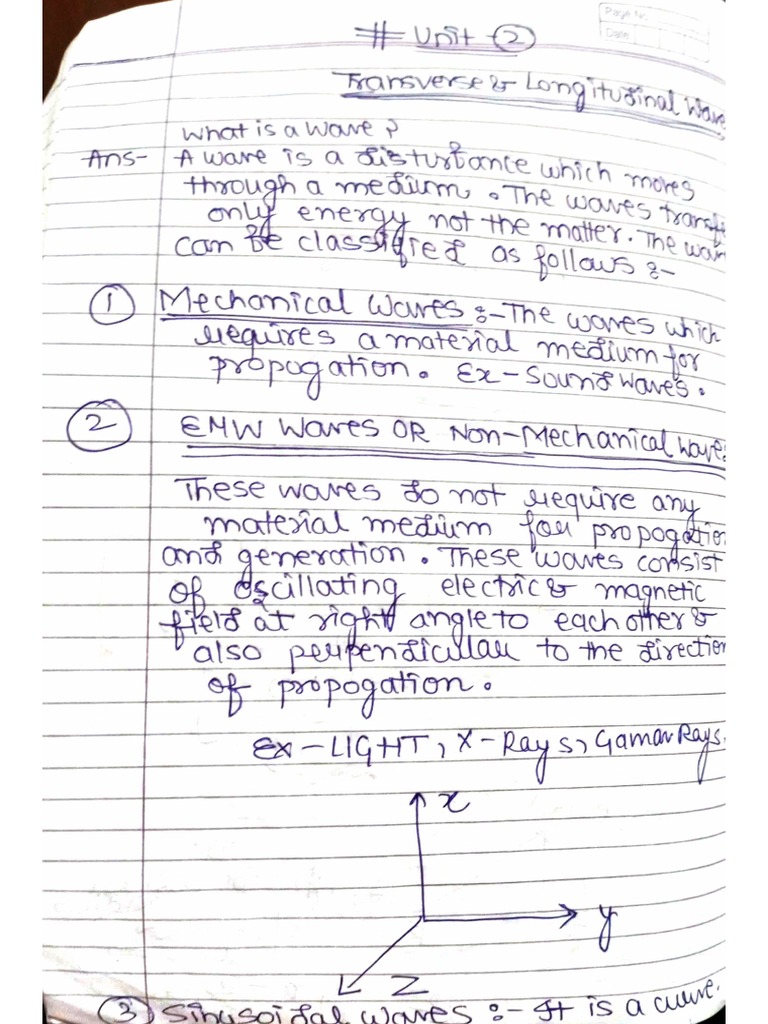 Page No.
Date
# Unit - 2
Transverse & Longitudinal Wave
What is a wave?
Ans- A wave is a disturbance which moves
through a medium. The waves transf
only energy not the matter. The wav
can be classified as follows :-
1 Mechanical Waves :- The waves which
requires a material medium for
propogation. Ex - Sound waves.
2 EMW Waves OR Non-Mechanical Wave
These waves do not require any
material medium for propogation
and generation. These waves consist
of oscillating electric & magnetic
field at right angle to each other &
also perpendicular to the direction
of propogation.
Ex - LIGHT, X-Rays, Gamar Rays.
x
y
Z
3 Sinusoidal waves :- It is a curve.